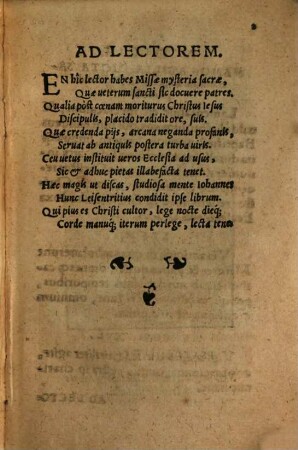 AD LECTOREM.
EN hîc lector habes Missæ mysteria sacræ,
Quæ ueterum sancti sic docuere patres.
Qualia pòst cœnam moriturus Christus Iesus
Discipulis, placido tradidit ore, suis.
Quæ credenda pijs, arcana neganda profanis,
Seruat ab antiquis postera turba uiris.
Ceu uetus instituit ueros Ecclesia ad usus,
Sic & adhuc pietas illabefacta tenet.
Hæc magis ut discas, studiosa mente Iohannes
Hunc Leisentritius condidit ipse librum.
Qui pius es Christi cultor, lege nocte dieq;
Corde manuq; iterum perlege, lecta tene